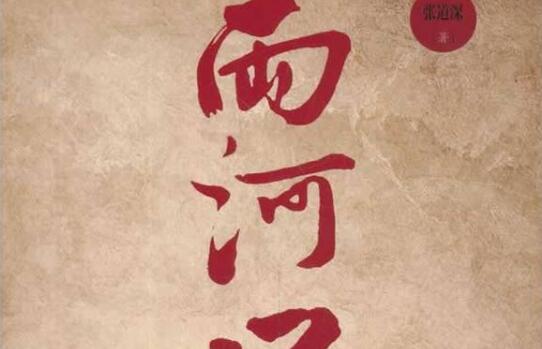 张道深
著
两河